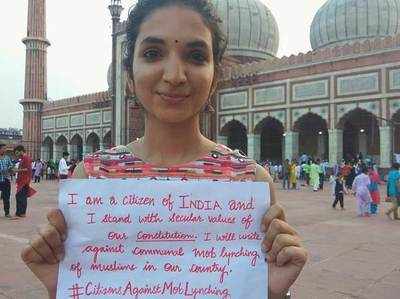 I am a citizen of INDIA and
I stand with secular values of
our Constitution. I will unite
against communal mob lynching
of muslims in our country.
#CitizensAgainstMobLynching